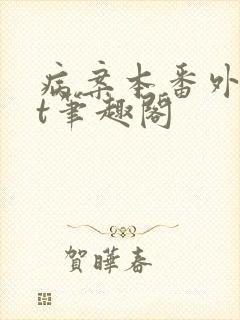 病案本番外
t笔趣阁
賀曄春